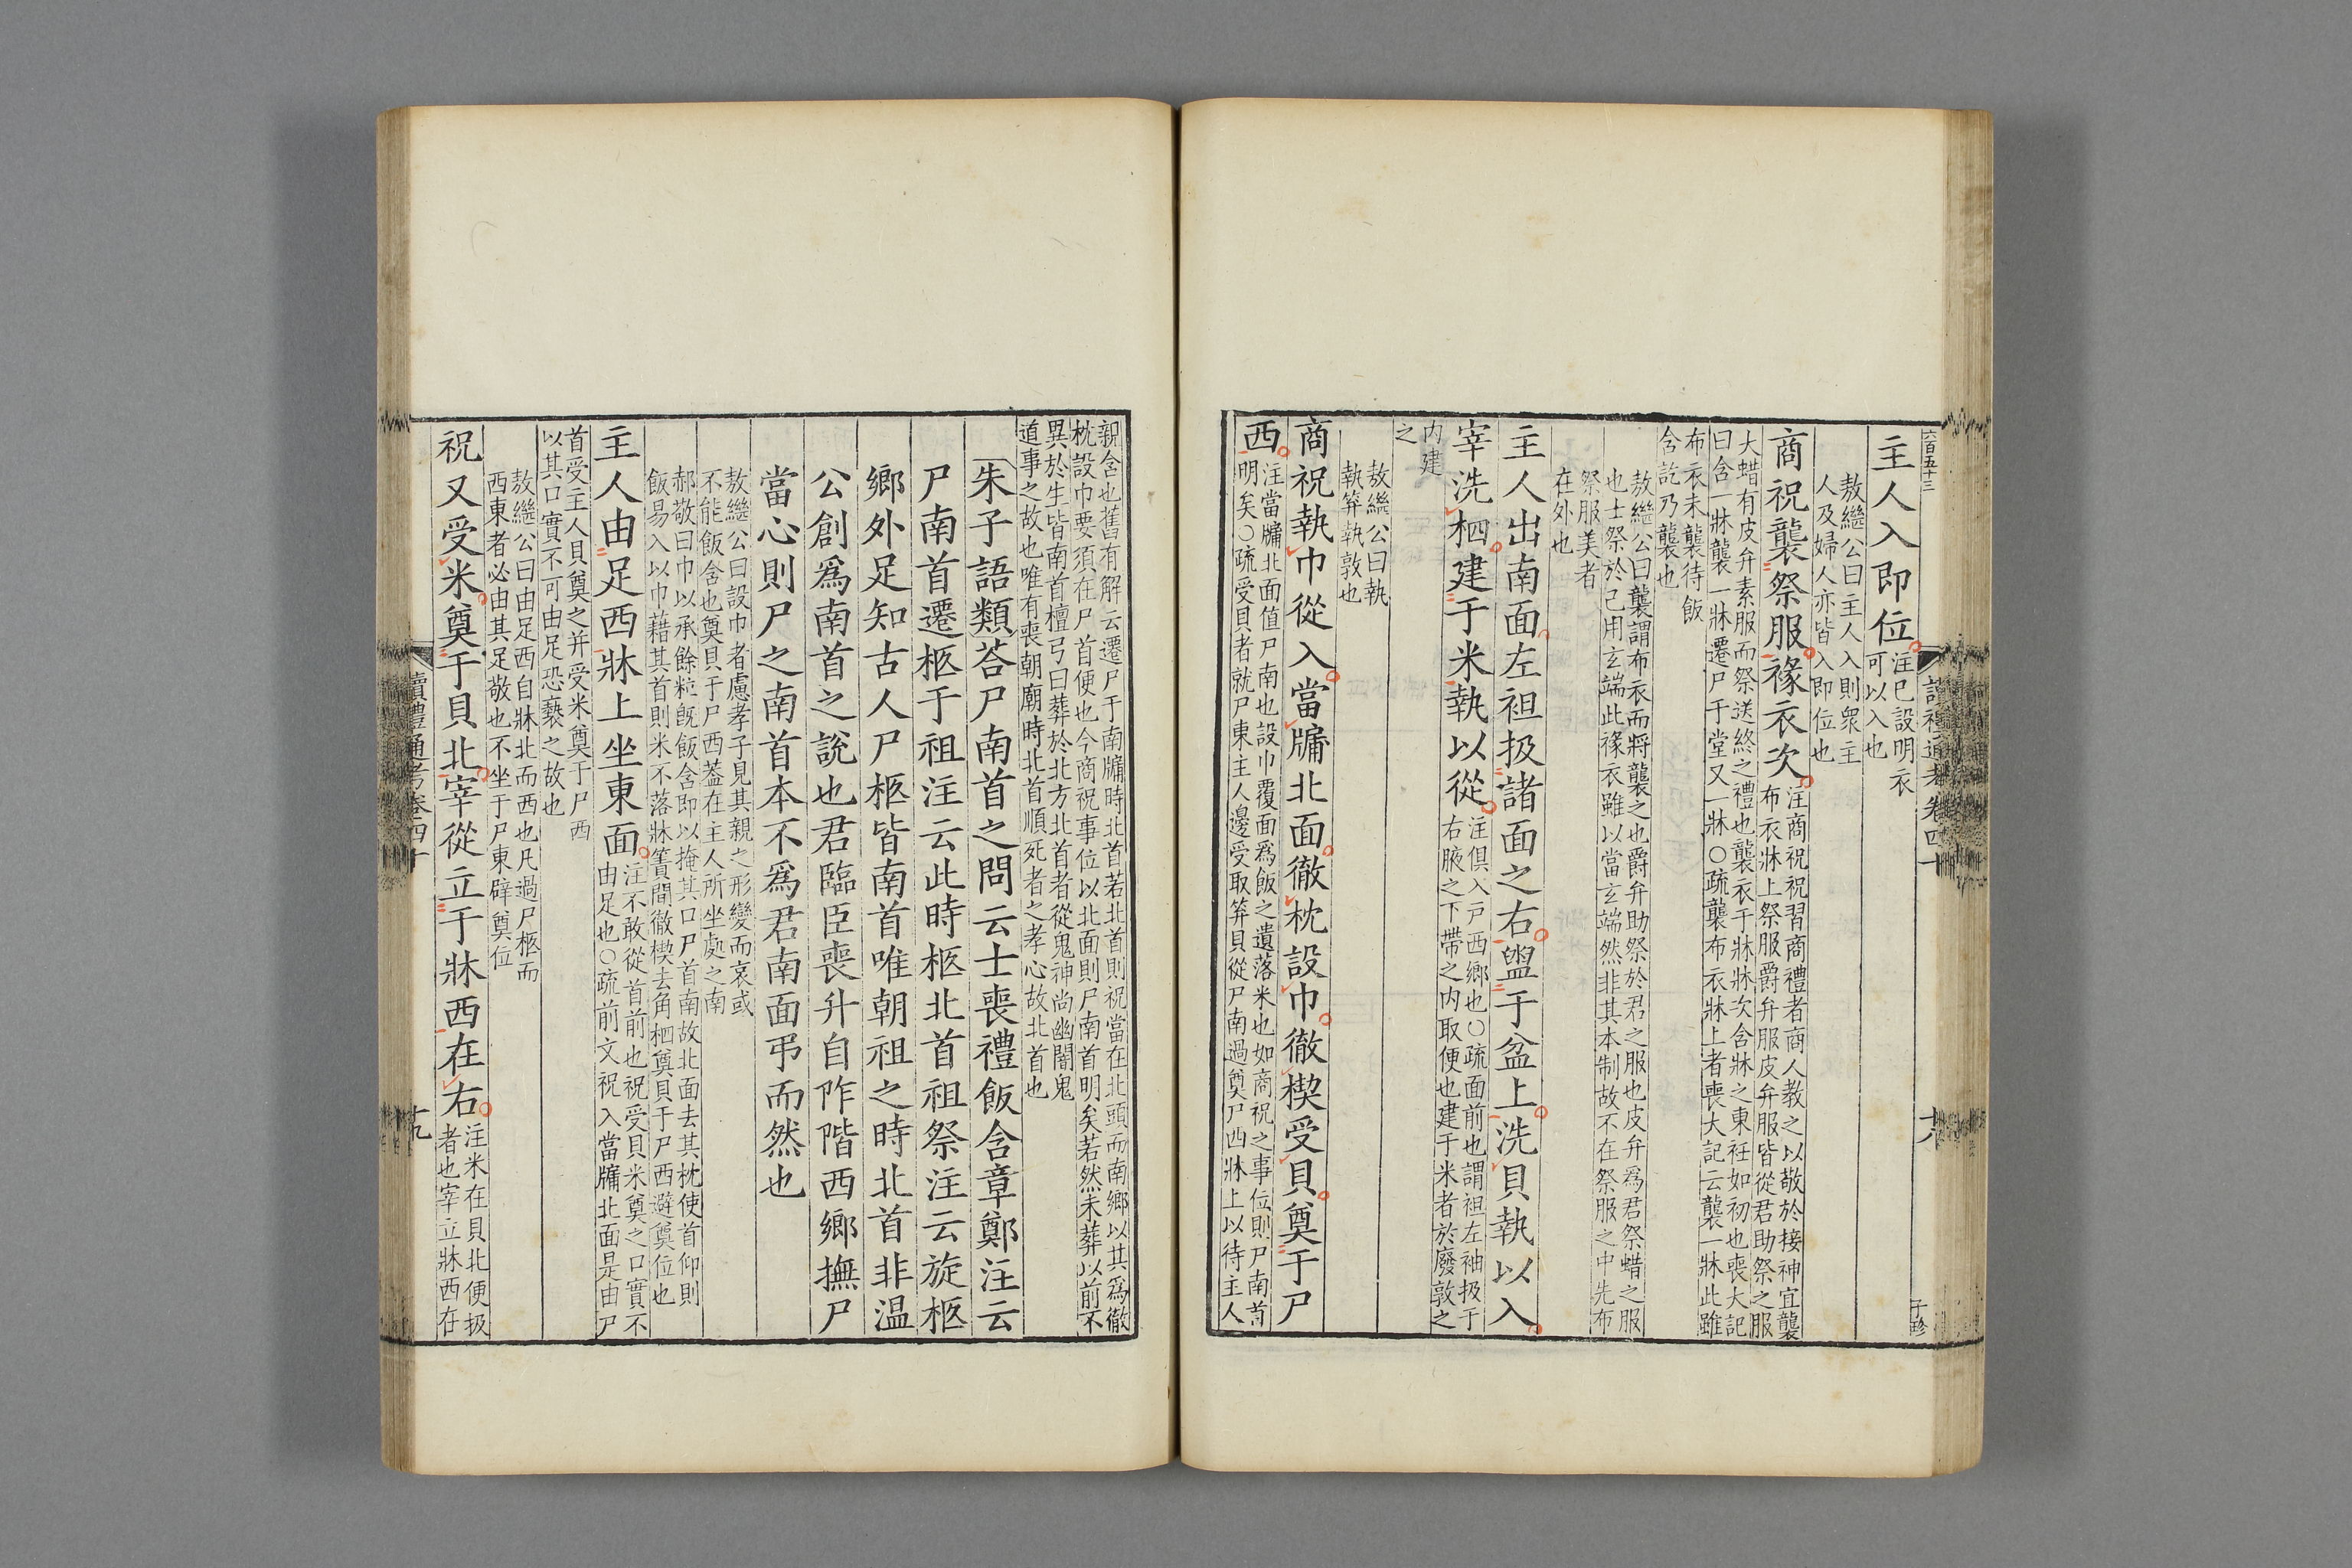 六百五十三
讀禮通考卷四十
十八
子珍
主人入即位注已設明衣
可以入也
敖繼公曰主人入則衆主
人及婦人亦皆入即位也
商祝襲祭服褖衣次注商祝祝習商禮者商人教之以敬於接神宜襲
布衣牀上祭服爵弁服皮弁服皆從君助祭之服
大蜡有皮弁素服而祭送終之禮也襲衣于牀牀次含牀之東衽如初也喪大記
曰含一牀襲一牀遷尸于堂又一牀○疏襲布衣牀上者喪大記云襲一牀此雖
布衣未襲待飯
含訖乃襲也
敖繼公曰襲謂布衣而將襲之也爵弁助祭於君之服也皮弁爲君祭蜡之服
也士祭於己用玄端此褖衣雖以當玄端然非其本制故不在祭服之中先布
祭服美者
在外也
主人出南面左袒扱諸面之右盥于盆上洗貝執以入
宰洗柶建于米執以從注俱入戸西鄉也○疏面前也謂袒左袖扱于
右腋之下帶之内取便也建于米者於廢敦之
内建
之
敖繼公曰執
執笲執敦也
商祝執巾從入當牖北面徹枕設巾徹楔受貝奠于尸
西注當牖北面值尸南也設巾覆面爲飯之遺落米也如商祝之事位則尸南首
明矣○疏受貝者就尸東主人邊受取笲貝從尸南過奠尸西牀上以待主人
親含也舊有解云遷尸于南牖時北首若北首則祝當在北頭而南鄉以其爲徹
枕設巾要須在尸首便也今商祝事位以北面則尸南首明矣若然未葬以前不
異於生皆南首檀弓曰葬於北方北首者從鬼神尚幽闇鬼
道事之故也唯有喪朝廟時北首順死者之孝心故北首也
朱子語類荅尸南首之問云士喪禮飯含章鄭注云
尸南首遷柩于祖注云此時柩北首祖祭注云旋柩
鄉外足知古人尸柩皆南首唯朝祖之時北首非温
公創爲南首之說也君臨臣喪升自阼階西鄉撫尸
當心則尸之南首本不爲君南面弔而然也
敖繼公曰設巾者慮孝子見其親之形變而哀或
不能飯含也奠貝于尸西葢在主人所坐處之南
郝敬曰巾以承餘粒旣飯含即以掩其口尸首南故北面去其枕使首仰則
飯易入以巾藉其首則米不落牀簀間徹楔去角柶奠貝于尸西避奠位也
主人由足西牀上坐東面注不敢從首前也祝受貝米奠之口實不
由足也○疏前文祝入當牖北面是由尸
首受主人貝奠之并受米奠于尸西
以其口實不可由足恐褻之故也
敖繼公曰由足西自牀北而西也凡過尸柩而
西東者必由其足敬也不坐于尸東辟奠位
祝又受米奠于貝北宰從立于牀西在右注米在貝北便扱
者也宰立牀西在
讀禮通考卷四十
十九